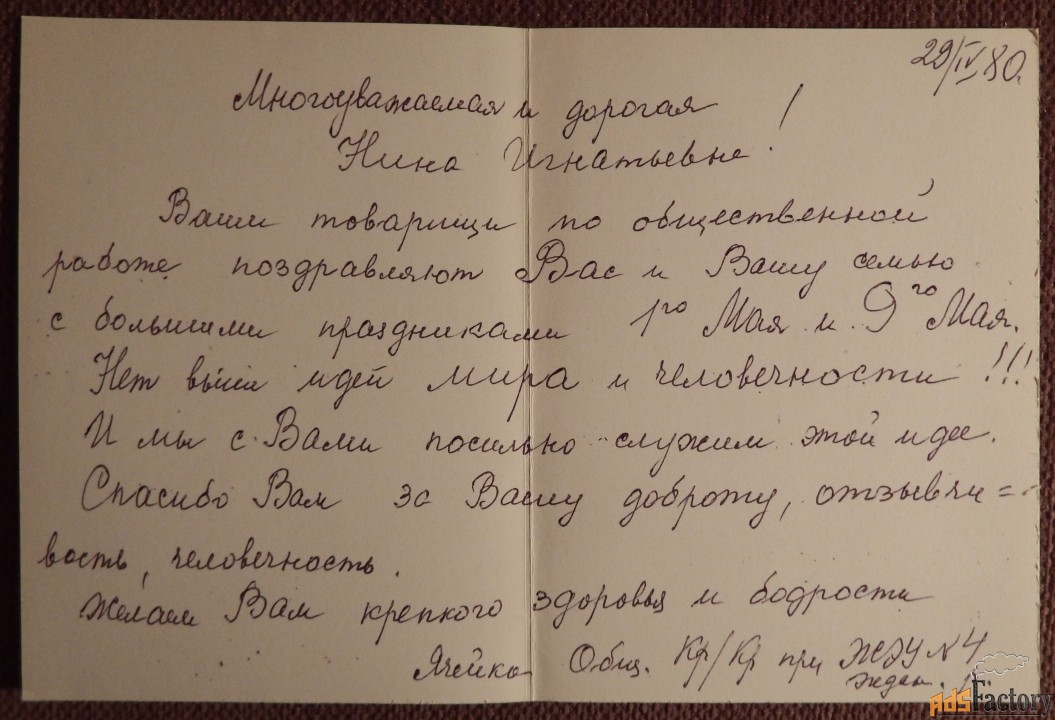 29/IV 80.
Многоуважаемая и дорогая
Нина Игнатьевна!
Ваши товарищи по общественной
работе поздравляют Вас и Вашу семью
с большими праздниками 1го Мая и 9го Мая.
Нет выше идей мира и человечности!!!
И мы с Вами посильно служим этой идее.
Спасибо Вам за Вашу доброту, отзывчи=
вость, человечность.
Желаем Вам крепкого здоровья и бодрости
Ячейка Общ. Кр/Кр при ЖЭУ №4
Ждан.
AdsFactory